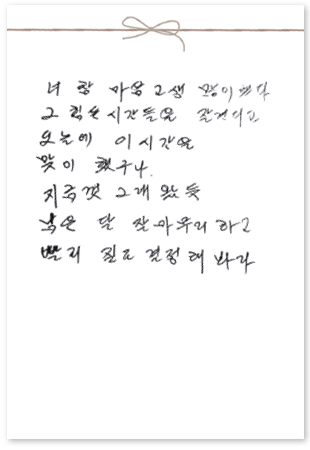 너 참 마음고생 많이 했다
그 힘든 시간들을 잘 견디고
오늘에 이 시간을
맞이 했구나.
지금껏 그래 왔듯
남은 달 잘 마무리 하고
빨리 진로 결정해 바라